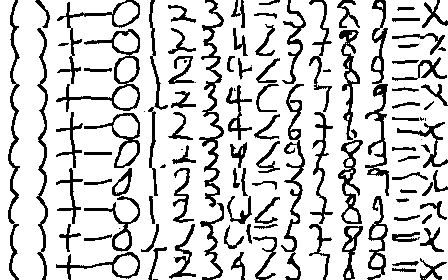 ( ) + - 0 1 2 3 4 5 7 8 9 = x
( ) + - 0 1 2 3 4 5 7 8 9 = x
( ) + - 0 1 2 3 4 5 7 8 9 = x
( ) + - 0 1 2 3 4 6 7 9 = x
( ) + - 0 1 2 3 4 6 7 8 9 = x
( ) + - 0 1 2 3 4 9 7 8 9 = x
( ) + - 0 1 2 3 4 5 3 7 8 9 = x
( ) + - 0 1 2 3 4 3 7 8 9 = x
( ) + - 0 1 2 3 4 5 5 7 8 9 = x
( ) + - 0 1 2 3 4 3 7 9 = x